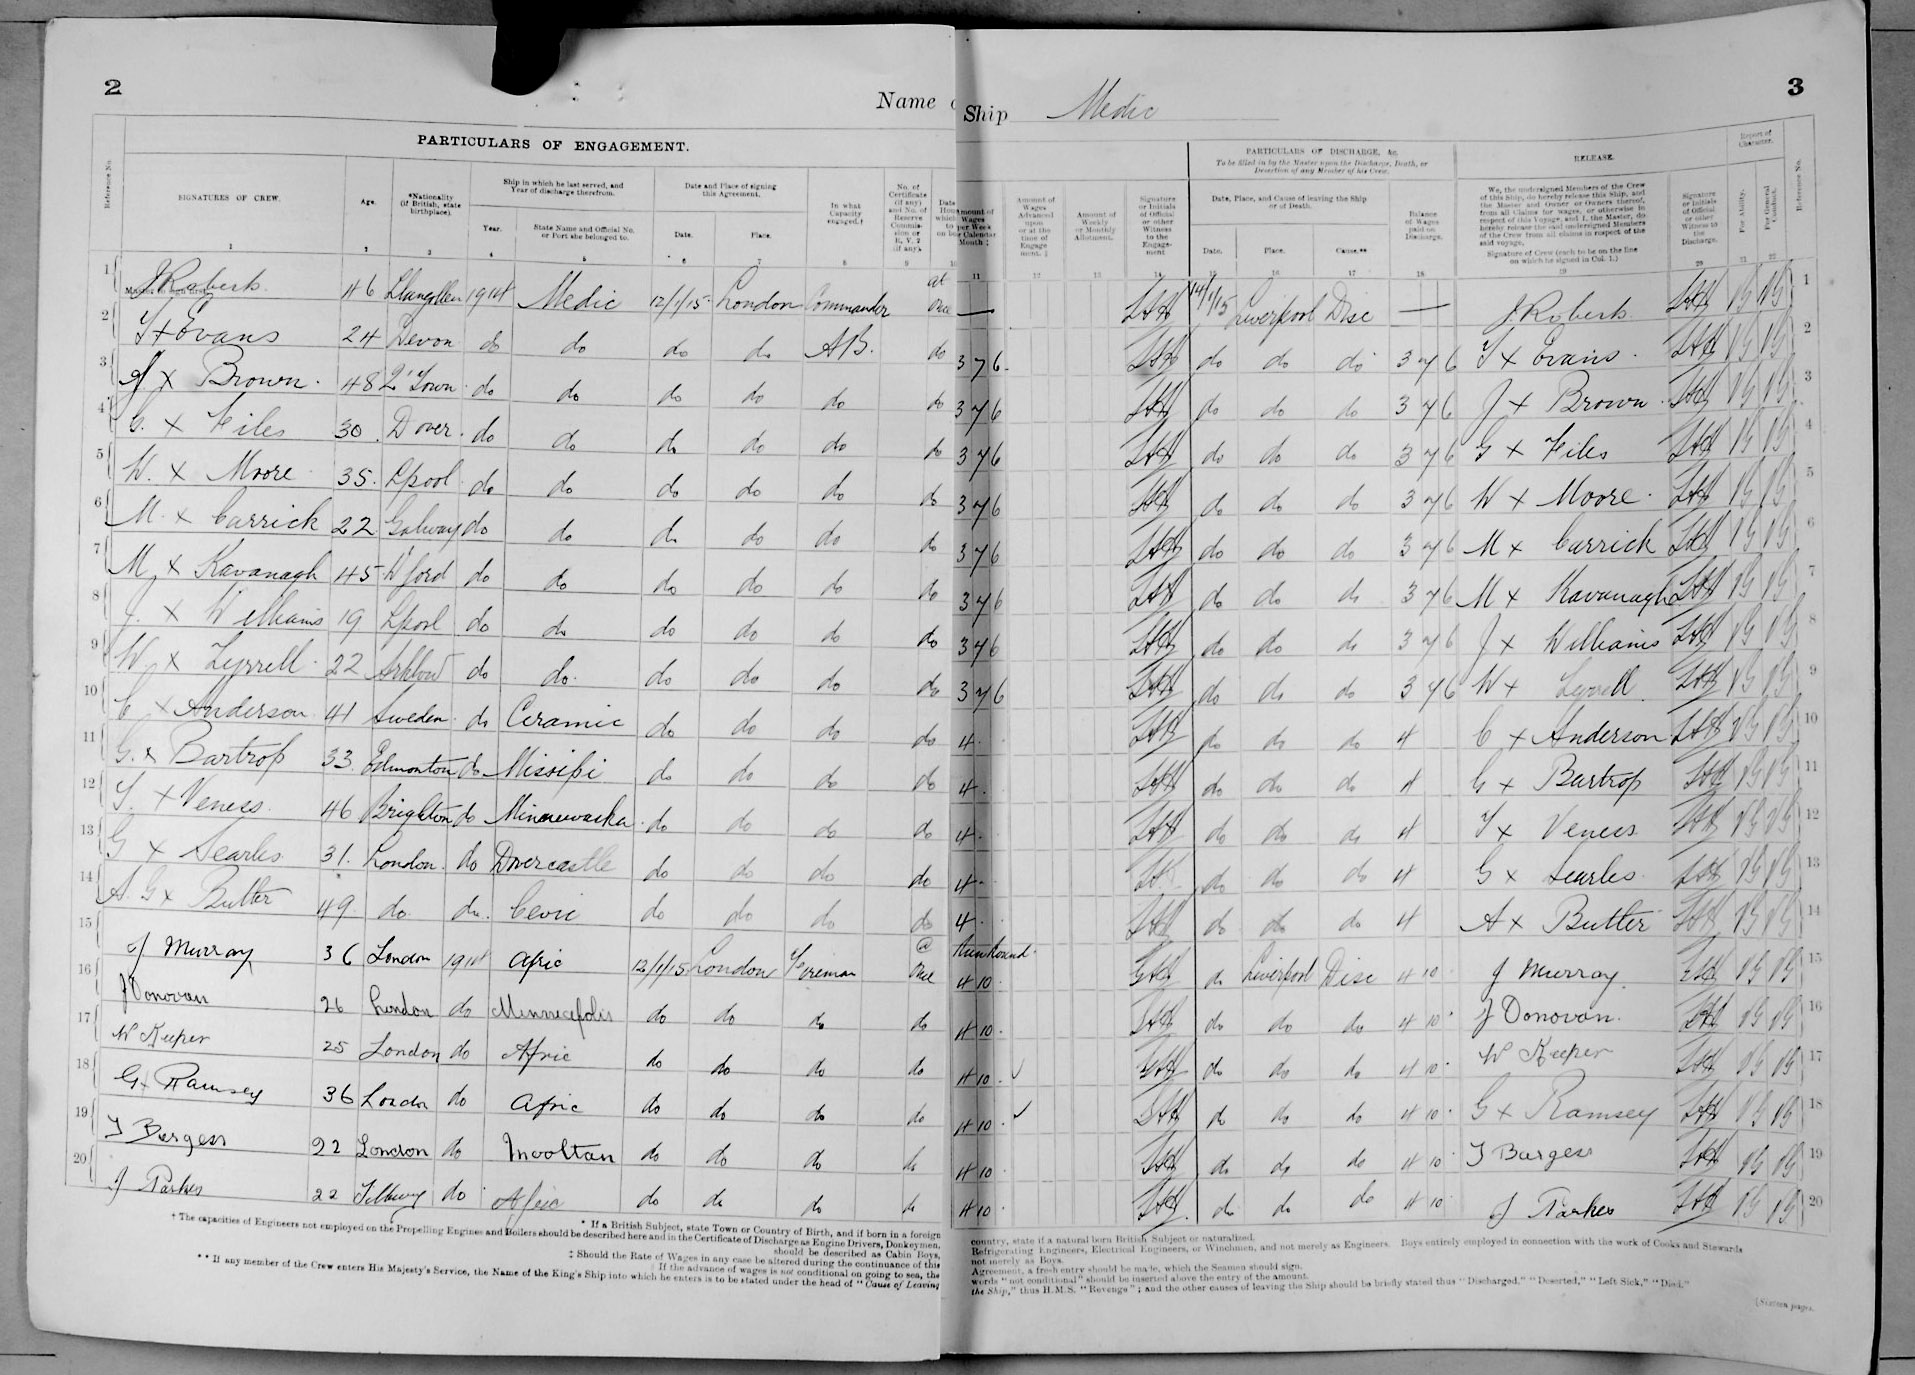 2
Name o
Ship Medic
3
PARTICULARS OF ENGAGEMENT.
PARTICULARS OF DISCHARGE, &c.
To be filled in by the Master upon the Discharge, Death, or Desertion of any Member of his Crew.
RELEASE.
Report of Character.
Reference No.
SIGNATURES OF CREW.
Age.
*Nationality (if British, state birthplace).
Ship in which he last served, and Year of discharge therefrom.
Year.
State Name and Official No. or Port she belonged to.
Date and Place of signing this Agreement.
Date.
Place.
In what Capacity engaged.†
No. of Certificate (if any) and No. of Reserve Commission or R.V.2 (if any).
Amount of Wages per Week or Calendar Month ‡
Amount of Wages Advanced upon or at the time of Engagement. ‡
Amount of Weekly or Monthly Allotment.
Signature or Initials of Official or other Witness to the Engagement
Date, Place, and Cause of leaving the Ship or of Death.
Date.
Place.
Cause.**
Balance of Wages paid on Discharge.
We, the undersigned Members of the Crew of this Ship, do hereby release this Ship, and the Master and Owner or Owners thereof, from all Claims for wages, or otherwise in respect of this Voyage, and I, the Master, do hereby release the said undersigned Members of the Crew from all claims in respect of the said voyage.
Signature of Crew (each to be on the line on which he signed in Col. 1.)
Signature or Initials of Official or other Witness to the Discharge.
For Ability.
For General Conduct.
Reference No.
1 2 3 4 5 6 7 8 9 10 11 12 13 14 15 16 17 18 19 20 21 22
1 J Roberts 46 Llangollen 1914 Medic 12/1/15 London Commander at once — 14/1/15 Liverpool Disc — J Roberts VG VG 1
2 T x Evans 24 Devon do do do do AB. do 3 7 6 do do do 3 7 6 T x Evans VG VG 2
3 J x Brown 48 Q'Town do do do do do do 3 7 6 do do do 3 7 6 J x Brown VG VG 3
4 G. x Files 30 Dover do do do do do do 3 7 6 do do do 3 7 6 G x Files VG VG 4
5 W. x Moore 35 Lpool do do do do do do 3 7 6 do do do 3 7 6 W x Moore VG VG 5
6 M. x Carrick 22 Galway do do do do do do 3 7 6 do do do 3 7 6 M x Carrick VG VG 6
7 M x Kavanagh 45 W'ford do do do do do do 3 7 6 do do do 3 7 6 M x Kavanagh VG VG 7
8 J. x Williams 19 Lpool do do do do do do 3 7 6 do do do 3 7 6 J x Williams VG VG 8
9 W x Tyrrell 22 Arklow do do do do do do 3 7 6 do do do 3 7 6 W x VG VG 9
10 C x Anderson 41 Sweden do Ceramic do do do do 4 do do do 4 C x Anderson VG VG 10
11 G. x Bartrop 33 Edmonton do Missipi do do do do 4 do do do 4 G x Bartrop VG VG 11
12 T. x Veness 46 Brighton do Minnewaska do do do do 4 do do do 4 T x Veness VG VG 12
13 G x Searles 31 London do Dovercastle do do do do 4 do do do 4 G x Searles VG VG 13
14 A. G x Butler 49 do do Cevic do do do do 4 do do do 4 A x Butler VG VG 14
15 J Murray 36 London 1914 Afric 12/1/15 London Fireman @ once 4 10 do Liverpool Disc 4 10 J Murray VG VG 15
16 J Donovan 26 London do Minneapolis do do do do 4 10 do do do 4 10 J Donovan VG VG 16
17 W Keeper 25 London do Afric do do do do 4 10 do do do 4 10 W Keeper VG VG 17
18 G x Ramsey 36 London do Afric do do do do 4 10 do do do 4 10 G x Ramsey VG VG 18
19 T Burgess 22 London do Mooltan do do do do 4 10 do do do 4 10 T Burgess VG VG 19
20 J Parkes 22 Tilbury do Afric do do do do 4 10 do do do 4 10 J Parkes VG VG 20
* If a British Subject, state Town or Country of Birth, and if born in a foreign country, state if a natural born British Subject or naturalized.
† The capacities of Engineers not employed on the Propelling Engines and Boilers should be described here and in the Certificate of Discharge as Engine Drivers, Donkeymen, Refrigerating Engineers, Electrical Engineers, or Winchmen, and not merely as Engineers. Boys entirely employed in connection with the work of Cooks and Stewards should be described as Cabin Boys, not merely as Boys.
‡ Should the Rate of Wages in any case be altered during the continuance of this Agreement, a fresh entry should be made, which the Seamen should sign.
If the advance of wages is not conditional on going to sea, the words "not conditional" should be inserted above the entry of the amount.
** If any member of the Crew enters His Majesty's Service, the Name of the King's Ship into which he enters is to be stated under the head of "Cause of Leaving the Ship," thus H.M.S. "Revenge"; and the other causes of leaving the Ship should be briefly stated thus "Discharged," "Deserted," "Left Sick," "Died."
[Sixteen pages.